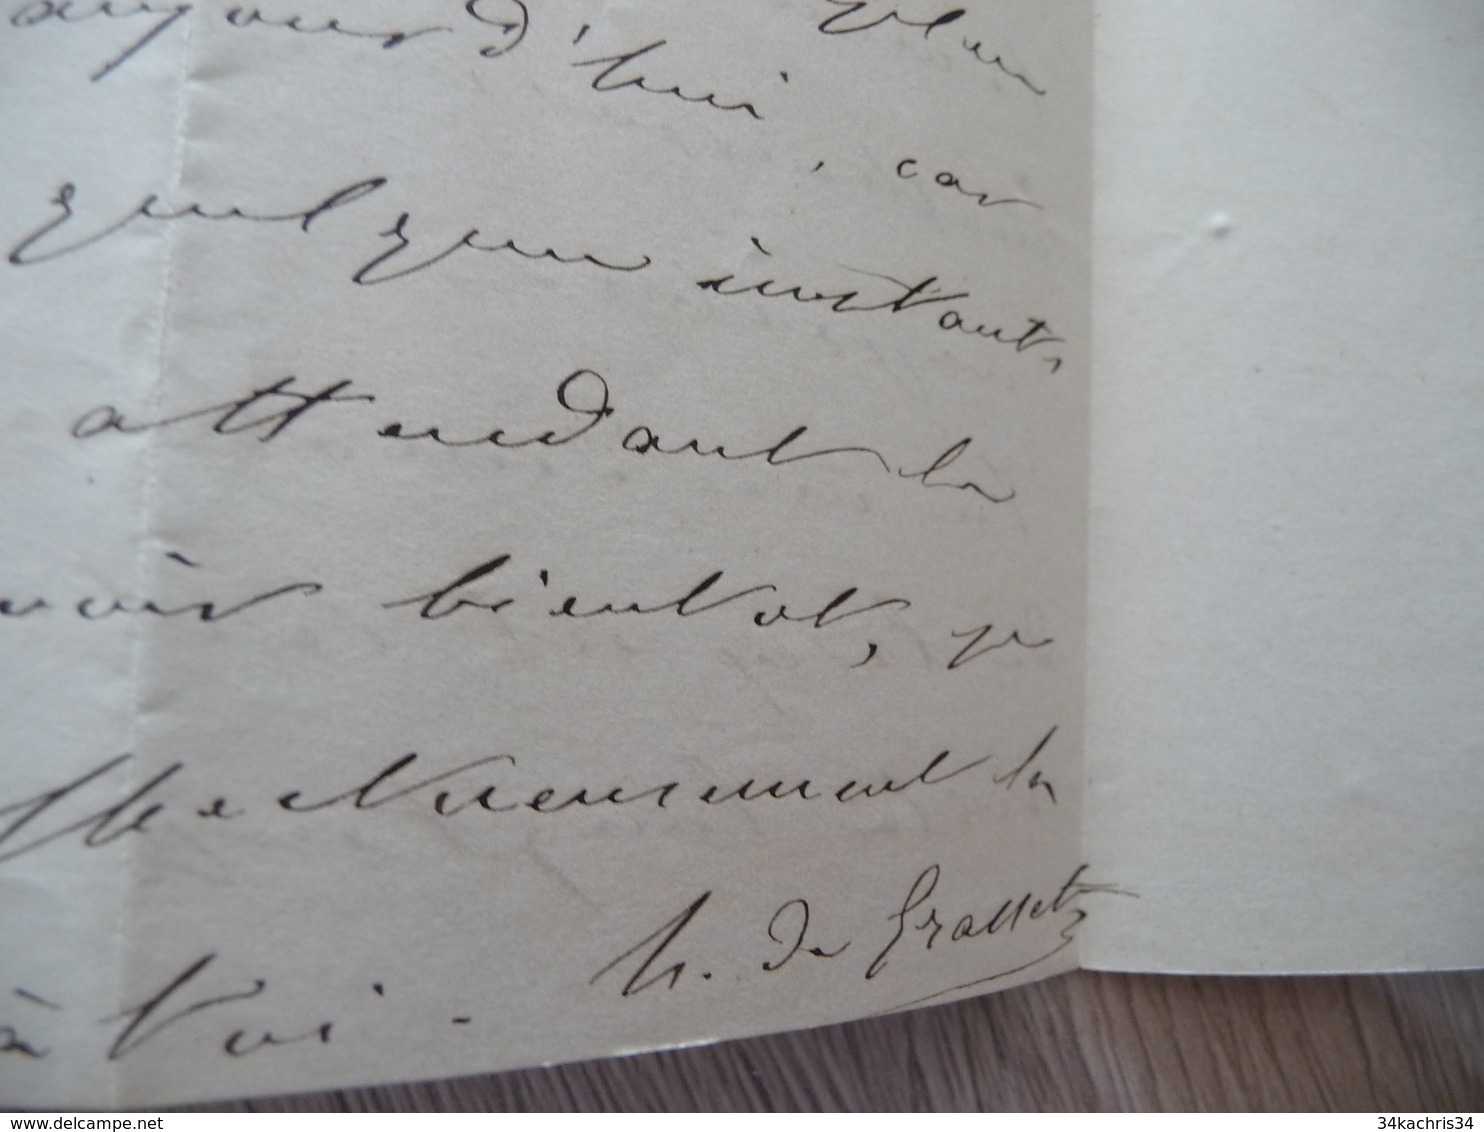 aujourd'hui, car
quelques instants,
attendant le
voir bientot, je
affectueusement la
à toi. h. de Grasset
www.delcampe.net
34kachris34